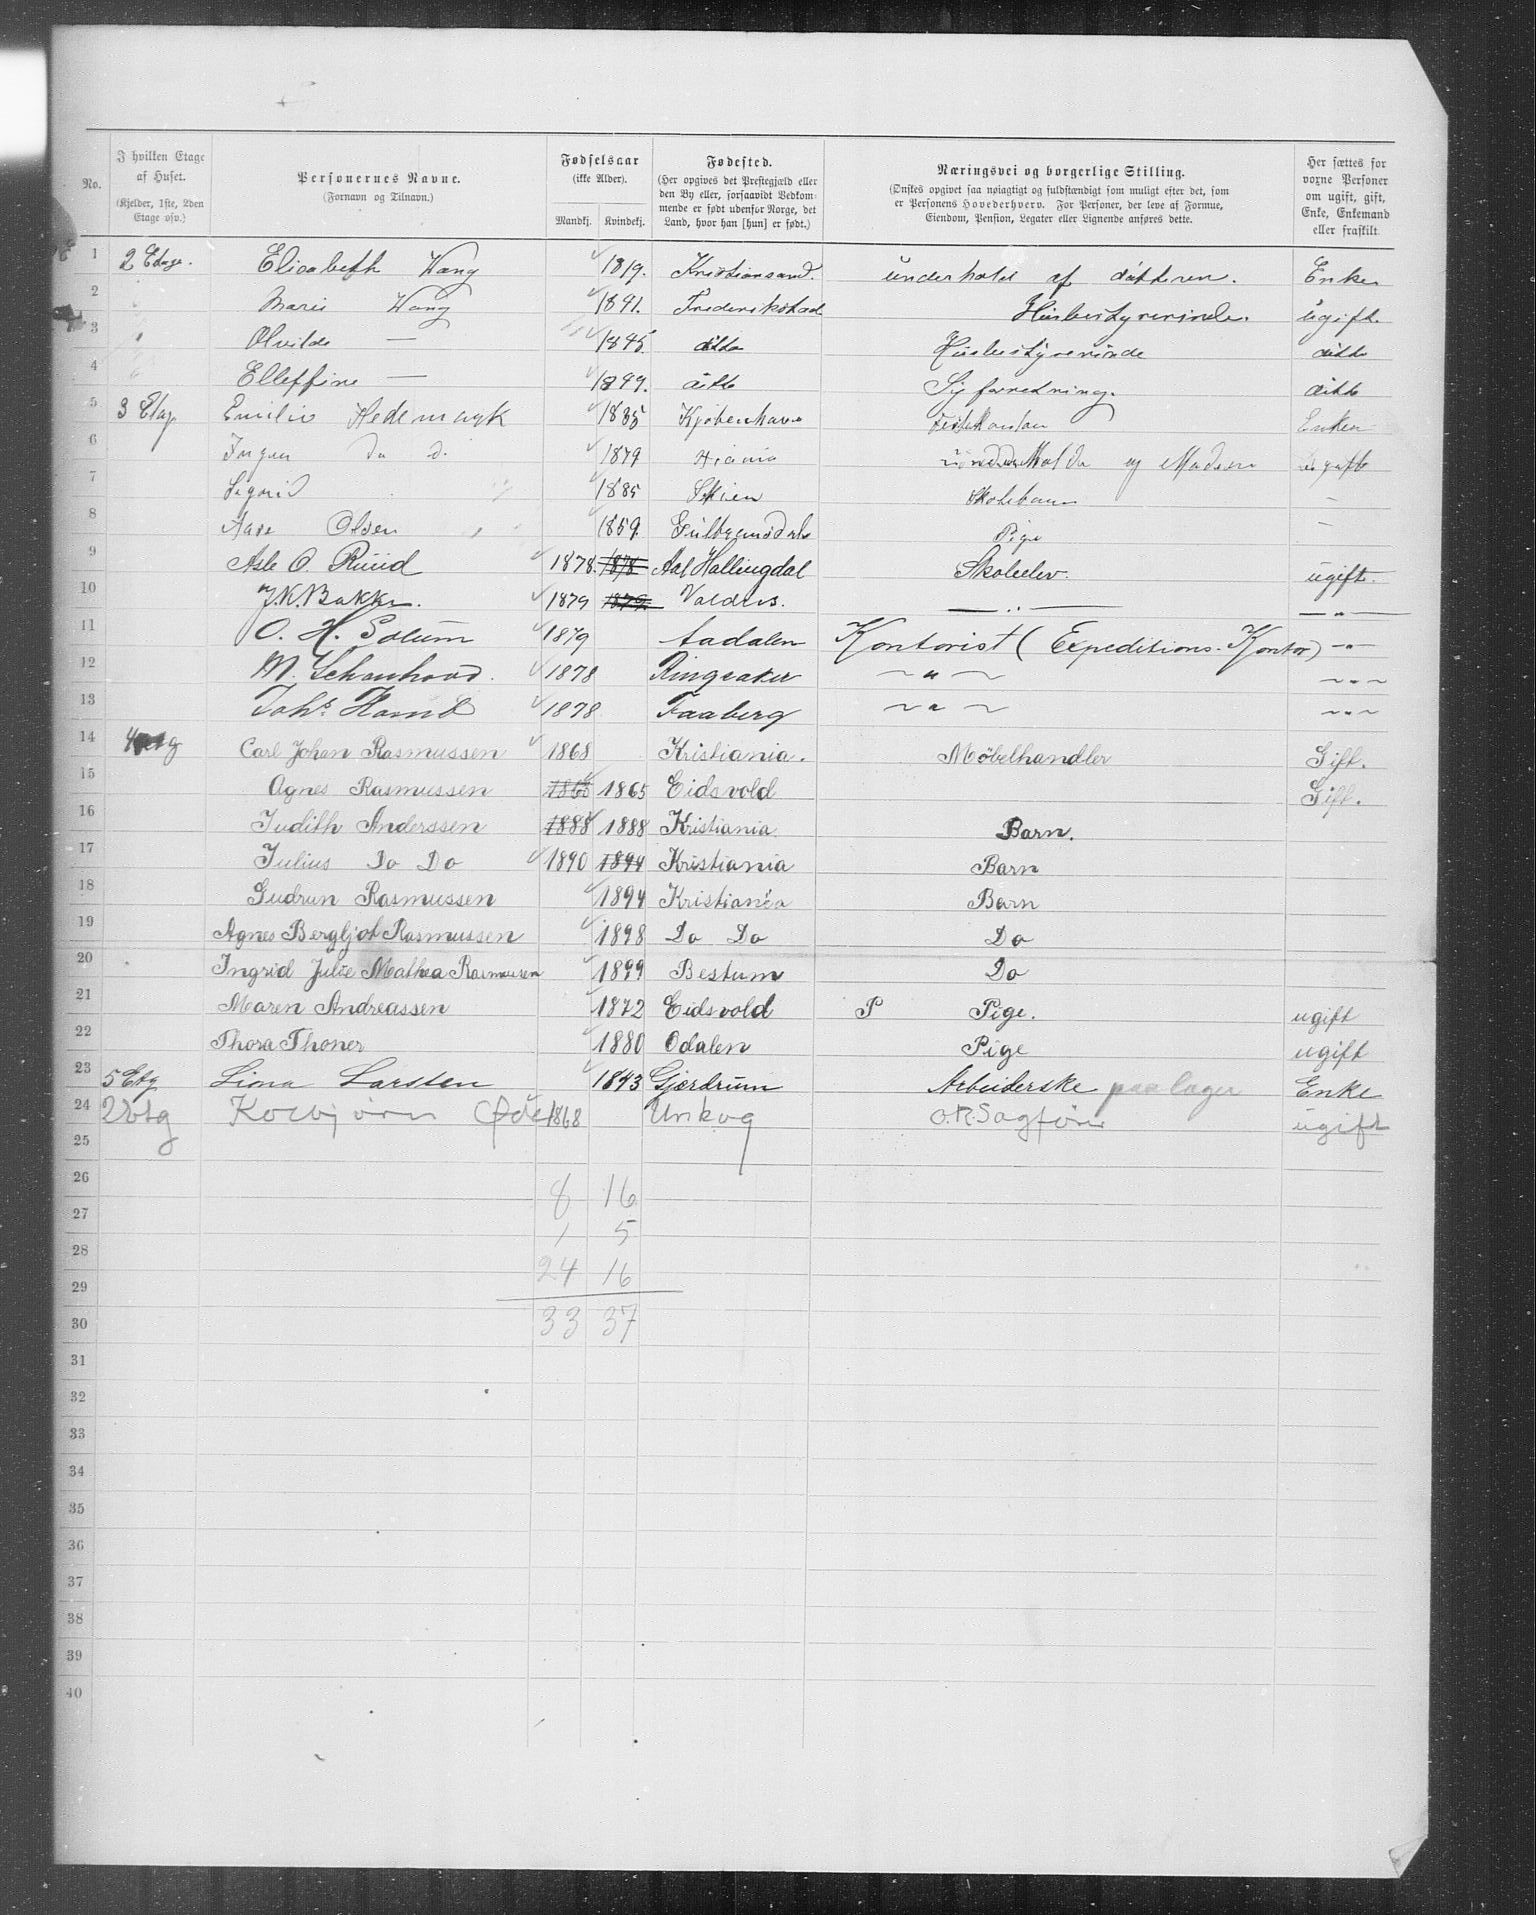 No. | I hvilken Etage af Huset. (Kjelder, 1ste, 2den Etage osv.) | Personernes Navne. (Fornavn og Tilnavn.) | Fødselsaar (ikke Alder). Mandkj. Kvindekj. | Fødested. (Her opgives det Prestegjæld eller den By eller, forsaavidt Vedkommende er født udenfor Norge, det Land, hvor han [hun] er født.) | Næringsvei og borgerlige Stilling. (Ønskes opgivet saa nøiagtigt og fuldstændigt som muligt efter det, som er Personens Hovederhverv. For Personer, der leve af Formue, Eiendom, Pension, Legater eller Lignende anføres dette.) | Her sættes for voxne Personer om ugift, gift, Enke, Enkemand eller fraskilt
1 2 Etage. Elisabeth Wang 1819. Kristiansand. underhold af døtteren. Enke
2 Marie Wang 1841. Frederikstad Husbestyrerinde. ugift.
3 Olvilde — 1845 ditto Husbestyrerinde ditto
4 Elleffine — 1849. ditto Syforretning. ditto
5 3 Etag Emilie Hedemark 1835 Kjøbenhavn Enke
6 do d. 1879 og Moderen ugift
7 Sigrid 1885 Skien Skolebarn —
8 Olsen 1859. Gulbrandsdalen Pige —
9 Asle O. Ruud 1878. 1878 Aal Hallingdal Skoleelev. ugift.
10 J.K. Bakke. 1879 1879 Valdres. — " — — " —
11 O. H. Solum 1879 Aadalen Kontorist (Expeditions-Kontor) — " —
12 M. Schouhood. 1878 Ringsaker — " — — " —
13 Johs. Hamb 1878 Faaberg — " — — " —
14 4 etg Carl Johan Rasmussen 1868 Kristiania. Möbelhandler Gift.
15 Agnes Rasmussen 1865 1865 Eidsvold Gift.
16 Judith Anderssen 1888 1888 Kristiania Barn.
17 Julius Do Do 1890 1894 Kristiania Barn
18 Gudrun Rasmussen 1894 Kristiania Barn
19 Agnes Bergljot Rasmussen 1898 Do Do Do
20 Ingrid Julie Mathea Rasmussen 1899 Bestum Do
21 Maren Andreassen 1872 Eidsvold P Pige. ugift
22 Thora Thoner 1880 Odalen Pige ugift
23 5 Etg Lina Larsten 1843 Gjerdrum Arbeiderske paa lager Enke
24 2 etg Kolbjørn Øde 1868 Urskog O.R. Sagfører ugift
25
26 8 16
27 1 5
28 24 16
29
30 33 37
31
32
33
34
35
36
37
38
39
40